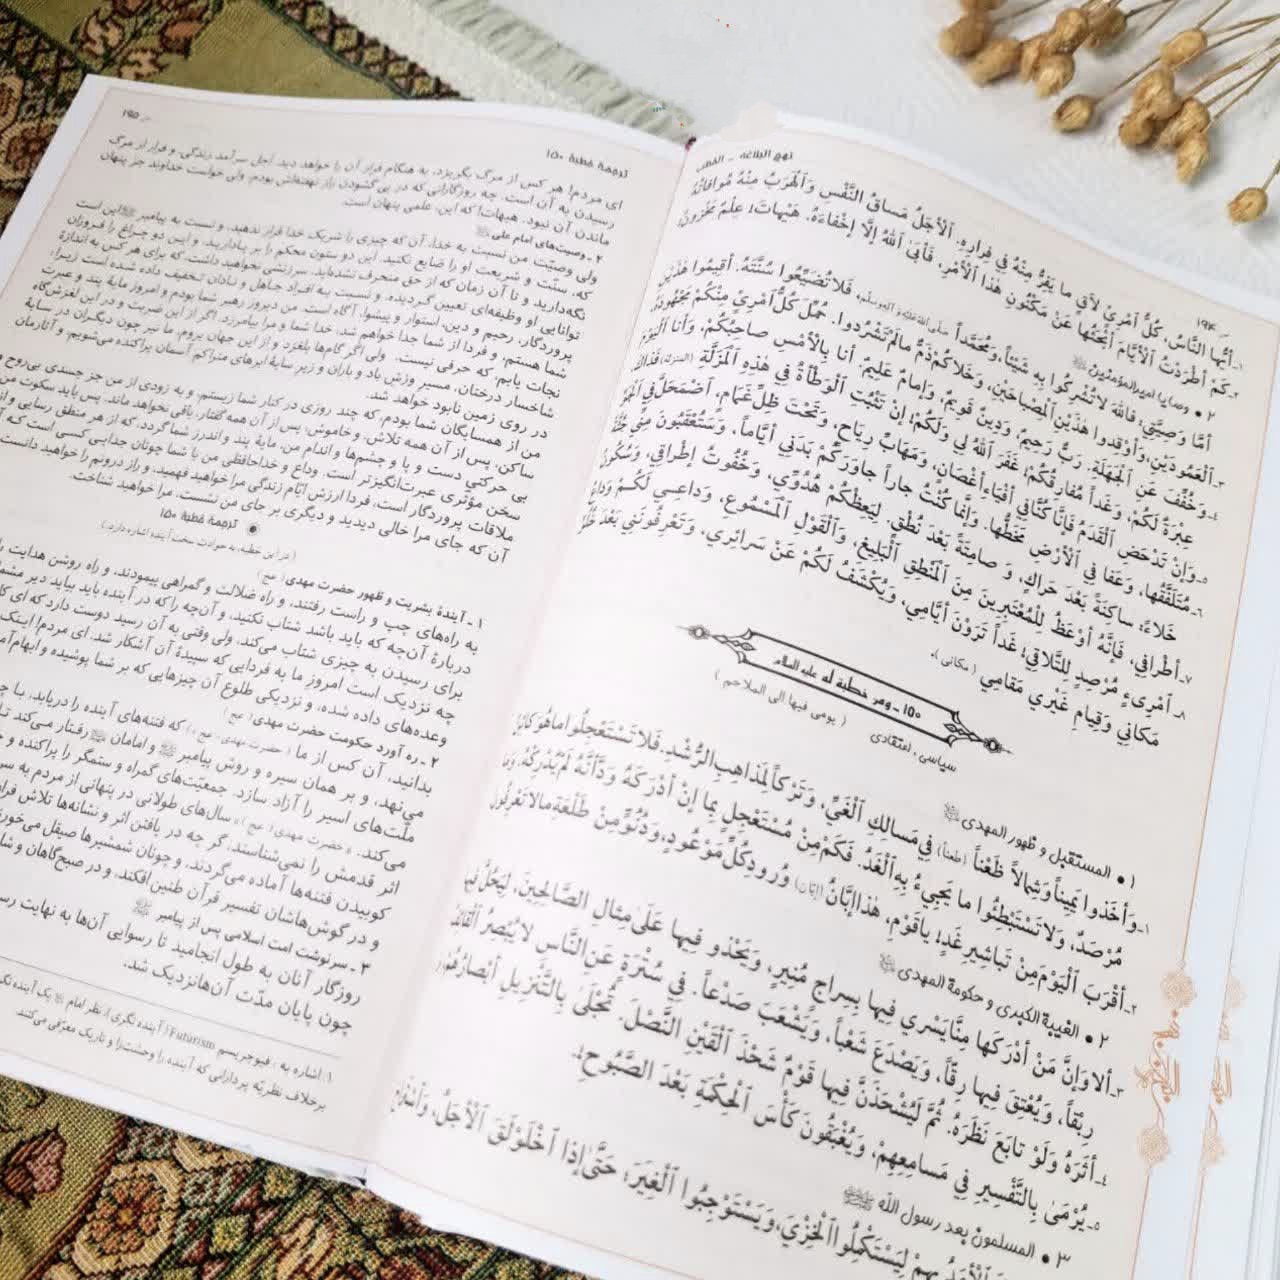 ۱۹۴
نهج البلاغه - الخطب
۱ـ أَيُّهَا النَّاسُ، كُلُّ امْرِئٍ لاَقٍ مَا يَفِرُّ مِنْهُ فِي فِرَارِهِ. اَلْأَجَلُ مَسَاقُ النَّفْسِ وَالْهَرَبُ مِنْهُ مُوَافَاتُهُ
۲ـ كَمْ أَطْرَدْتُ الْأَيَّامَ أَبْحَثُهَا عَنْ مَكْنُونِ هَذَا الْأَمْرِ، فَأَبَى اللهُ إِلَّا إِخْفَاءَهُ. هَيْهَاتَ! عِلْمٌ مَخْزُونٌ
۲ • وصايا اميرالمؤمنين
أَمَّا وَصِيَّتِي: فَاللهَ لاَ تُشْرِكُوا بِهِ شَيْئاً، وَمُحَمَّداً صلّى الله عليه وآله وسلّم، فَلاَ تُضَيِّعُوا سُنَّتَهُ. أَقِيمُوا هَذَيْنِ
۳ـ الْعَمُودَيْنِ، وَأَوْقِدُوا هَذَيْنِ الْمِصْبَاحَيْنِ، وَخَلاَكُمْ ذَمٌّ مَا لَمْ تَشْرُدُوا. حُمِّلَ كُلُّ امْرِئٍ مِنْكُمْ مَجْهُودَهُ
۴ـ وَخُفِّفَ عَنِ الْجَهَلَةِ. رَبٌّ رَحِيمٌ، وَدِينٌ قَوِيمٌ، وَإِمَامٌ عَلِيمٌ. أَنَا بِالْأَمْسِ صَاحِبُكُمْ، وَأَنَا الْيَوْمَ
عِبْرَةٌ لَكُمْ، وَغَداً مُفَارِقُكُمْ! غَفَرَ اللهُ لِي وَلَكُمْ! إِنْ تَثْبُتِ الْوَطْأَةُ فِي هَذِهِ الْمَزَلَّةِ (المنزلة) فَذَاكَ،
۵ـ وَإِنْ تَدْحَضِ الْقَدَمُ فَإِنَّا كُنَّا فِي أَفْيَاءِ أَغْصَانٍ، وَمَهَابِّ رِيَاحٍ، وَتَحْتَ ظِلِّ غَمَامٍ، اضْمَحَلَّ فِي الْجَوِّ
۶ـ مُتَلَفَّقُهَا، وَعَفَا فِي الْأَرْضِ مَخَطُّهَا. وَإِنَّمَا كُنْتُ جَاراً جَاوَرَكُمْ بَدَنِي أَيَّاماً، وَسَتُعْقَبُونَ مِنِّي جُثَّةً
خَلاَءً: سَاكِنَةً بَعْدَ حَرَاكٍ، وَ صَامِتَةً بَعْدَ نُطْقٍ. لِيَعِظْكُمْ هُدُوِّي، وَخُفُوتُ إِطْرَاقِي، وَسُكُونُ
۷ـ أَطْرَافِي، فَإِنَّهُ أَوْعَظُ لِلْمُعْتَبِرِينَ مِنَ الْمَنْطِقِ الْبَلِيغِ، وَالْقَوْلِ الْمَسْمُوعِ، وَدَاعِي لَكُمْ وَدَاعُ
۸ـ امْرِئٍ مُرْصِدٍ لِلتَّلاَقِي! غَداً تَرَوْنَ أَيَّامِي، وَيُكْشَفُ لَكُمْ عَنْ سَرَائِرِي، وَتَعْرِفُونَنِي بَعْدَ خُلُوِّ
مَكَانِي وَقِيَامِ غَيْرِي مَقَامِي (مكاني).
۱۵۰ - ومن خطبة له عليه السلام
(يومى فيها الى الملاحم)
سیاسی، اعتقادی
۱ • المستقبل و ظهور المهدى
۱ـ وَأَخَذُوا يَمِيناً وَشِمَالاً ظَعْناً (طعناً) فِي مَسَالِكِ الْغَيِّ، وَتَرْكاً لِمَذَاهِبِ الرُّشْدِ. فَلاَ تَسْتَعْجِلُوا مَا هُوَ كَائِنٌ
مُرْصَدٌ، وَلاَ تَسْتَبْطِئُوا مَا يَجِيءُ بِهِ الْغَدُ. فَكَمْ مِنْ مُسْتَعْجِلٍ بِمَا إِنْ أَدْرَكَهُ وَدَّ أَنَّهُ لَمْ يُدْرِكْهُ، وَمَا
۲ـ أَقْرَبَ الْيَوْمَ مِنْ تَبَاشِيرِ غَدٍ! يَاقَوْمِ، هَذَا إِبَّانُ (إتيان) وُرُودِ كُلِّ مَوْعُودٍ، وَدُنُوٍّ مِنْ طَلْعَةِ مَا لاَ تَعْرِفُونَ
۲ • الغيبة الكبرى و حكومة المهدى
۳ـ أَلاَ وَإِنَّ مَنْ أَدْرَكَهَا مِنَّا يَسْرِي فِيهَا بِسِرَاجٍ مُنِيرٍ، وَيَحْذُو فِيهَا عَلَى مِثَالِ الصَّالِحِينَ، لِيَحُلَّ فِيهَا
رِبْقاً، وَيُعْتِقَ فِيهَا رِقّاً، وَيَصْدَعَ شَعْباً، وَيَشْعَبَ صَدْعاً. فِي سُتْرَةٍ عَنِ النَّاسِ لاَ يُبْصِرُ الْقَائِفُ
۴ـ أَثَرَهُ وَلَوْ تَابَعَ نَظَرَهُ. ثُمَّ لَيُشْحَذَنَّ فِيهَا قَوْمٌ شَحْذَ الْقَيْنِ النَّصْلَ. تُجْلَى بِالتَّنْزِيلِ أَبْصَارُهُمْ، وَ
۵ـ يُرْمَى بِالتَّفْسِيرِ فِي مَسَامِعِهِمْ، وَيُغْبَقُونَ كَأْسَ الْحِكْمَةِ بَعْدَ الصَّبُوحِ.
۳ • المسلمون بعد رسول الله
الْأَمَدُ بِهِمْ لِيَسْتَكْمِلُوا الْخِزْيَ، وَيَسْتَوْجِبُوا الْغِيَرَ؛ حَتَّى إِذَا اخْلَوْلَقَ الْأَجَلُ، وَ
۱۹۵
ترجمهٔ خطبهٔ ۱۵۰
ای مردم! هر کس از مرگ بگریزد، به هنگام فرار آن را خواهد دید. اجل سرآمد زندگی، و فرار از مرگ
رسیدن به آن است. چه روزگارانی که در پی گشودن راز نهفته‌اش بودم، ولی خواست خداوند جز پنهان
ماندن آن نبود. هیهات! که این، علمی پنهان است.
۲ ـ وصیت‌های امام علی
ولی وصیّت من نسبت به خدا، آن که چیزی را شریک خدا قرار ندهید، و نسبت به پیامبر این است
که، سنّت و شریعت او را ضایع نکنید. این دو ستون محکم را بر پا دارید، و این دو چراغ را فروزان
نگه‌دارید، و تا آن زمان که از حق منحرف نشده‌اید، سرزنشی نخواهید داشت، که برای هر کس به اندازهٔ
توانایی او وظیفه‌ای تعیین گردیده، و نسبت به افراد جاهل و نادان تخفیف داده شده است زیرا:
پروردگار، رحیم و دین، استوار و پیشوا، آگاه است. من دیروز رهبر شما بودم و امروز مایهٔ پند و عبرت
شما هستم، و فردا از شما جدا خواهم شد، خدا شما و مرا بیامرزد. اگر از این ضربت و در این لغزش‌گاه
نجات یابم، که حرفی نیست، ولی اگر گام‌ها بلغزد و از این جهان بروم، ما نیز چون دیگران در سایهٔ
شاخسار درختان، مسیر وزش باد و باران و زیر سایهٔ ابرهای متراکم آسمان پراکنده می‌شویم، و آثارمان
در روی زمین نابود خواهد شد.
من از همسایگان شما بودم، که چند روزی در کنار شما زیستم، و به زودی از من جز جسدی بی‌روح و
ساکن، پس از آن همه تلاش، و خاموش، پس از آن همه گفتار، باقی نخواهد ماند. پس باید سکوت من
بی حرکتی دست و پا و چشم‌ها و اندام من، مایهٔ پند و اندرز شما گردد، که از هر منطق رسایی و از
سخن مؤثری عبرت‌انگیزتر است. وداع و خداحافظی من با شما چونان جدایی کسی است که
ملاقات پروردگار است، فردا ارزش ایّام زندگی مرا خواهید فهمید، و راز درونم را خواهید دانست
آن که جای مرا خالی دیدید و دیگری بر جای من نشست، مرا خواهید شناخت.
ترجمهٔ خطبهٔ ۱۵۰
(در این خطبه، به حوادث سخت آینده اشاره دارد.)
۱ ـ آیندهٔ بشریت و ظهور حضرت مهدی (عج)
به راه‌های چپ و راست رفتند، و راه ضلالت و گمراهی پیمودند، و راه روشن هدایت را
دربارهٔ آن‌چه که باید باشد شتاب نکنید، و آن‌چه را که در آینده باید بیاید دیر مشمارید
برای رسیدن به چیزی شتاب می‌کند، ولی وقتی به آن رسید دوست دارد که ای کاش
چه نزدیک است امروزِ ما به فردایی که سپیدهٔ آن آشکار شد. ای مردم! اینک
وعده‌های داده شده، و نزدیکی طلوع آن چیزهایی که بر شما پوشیده و ابهام‌آمیز
۲ ـ ره آورد حکومت حضرت مهدی (عج)
بدانید، آن کس از ما (حضرت مهدی - عج) که فتنه‌های آینده را دریابد، با چ
می‌نهد، و بر همان سیره و روش پیامبر و امامان رفتار می‌کند تا
ملّت‌های اسیر را آزاد سازد. جمعیّت‌های گمراه و ستمگر را پراکنده و
می‌کند. «حضرت مهدی (عج)» سال‌های طولانی در پنهانی از مردم به سر
اثر قدمش را نمی‌شناسند، گر چه در یافتن اثر و نشانه‌ها تلاش فراوان
کوبیدن فتنه‌ها آماده می‌گردند، و چونان شمشیرها صیقل می‌خورند
و در گوش‌هاشان تفسیر قرآن طنین‌افکند، و در صبح‌گاهان و شا
۳ ـ سرنوشت امت اسلامی پس از پیامبر
روزگار آنان به طول انجامید تا رسوایی آن‌ها به نهایت رسید
چون پایان مدّت آن‌ها نزدیک شد.
۱. اشاره به: فیوچریسم Futurism (آینده نگری)، نظر امام یک آینده نگری
برخلاف نظریّه پردازانی که آینده را وحشت‌زا و تاریک معرّفی می‌کنند